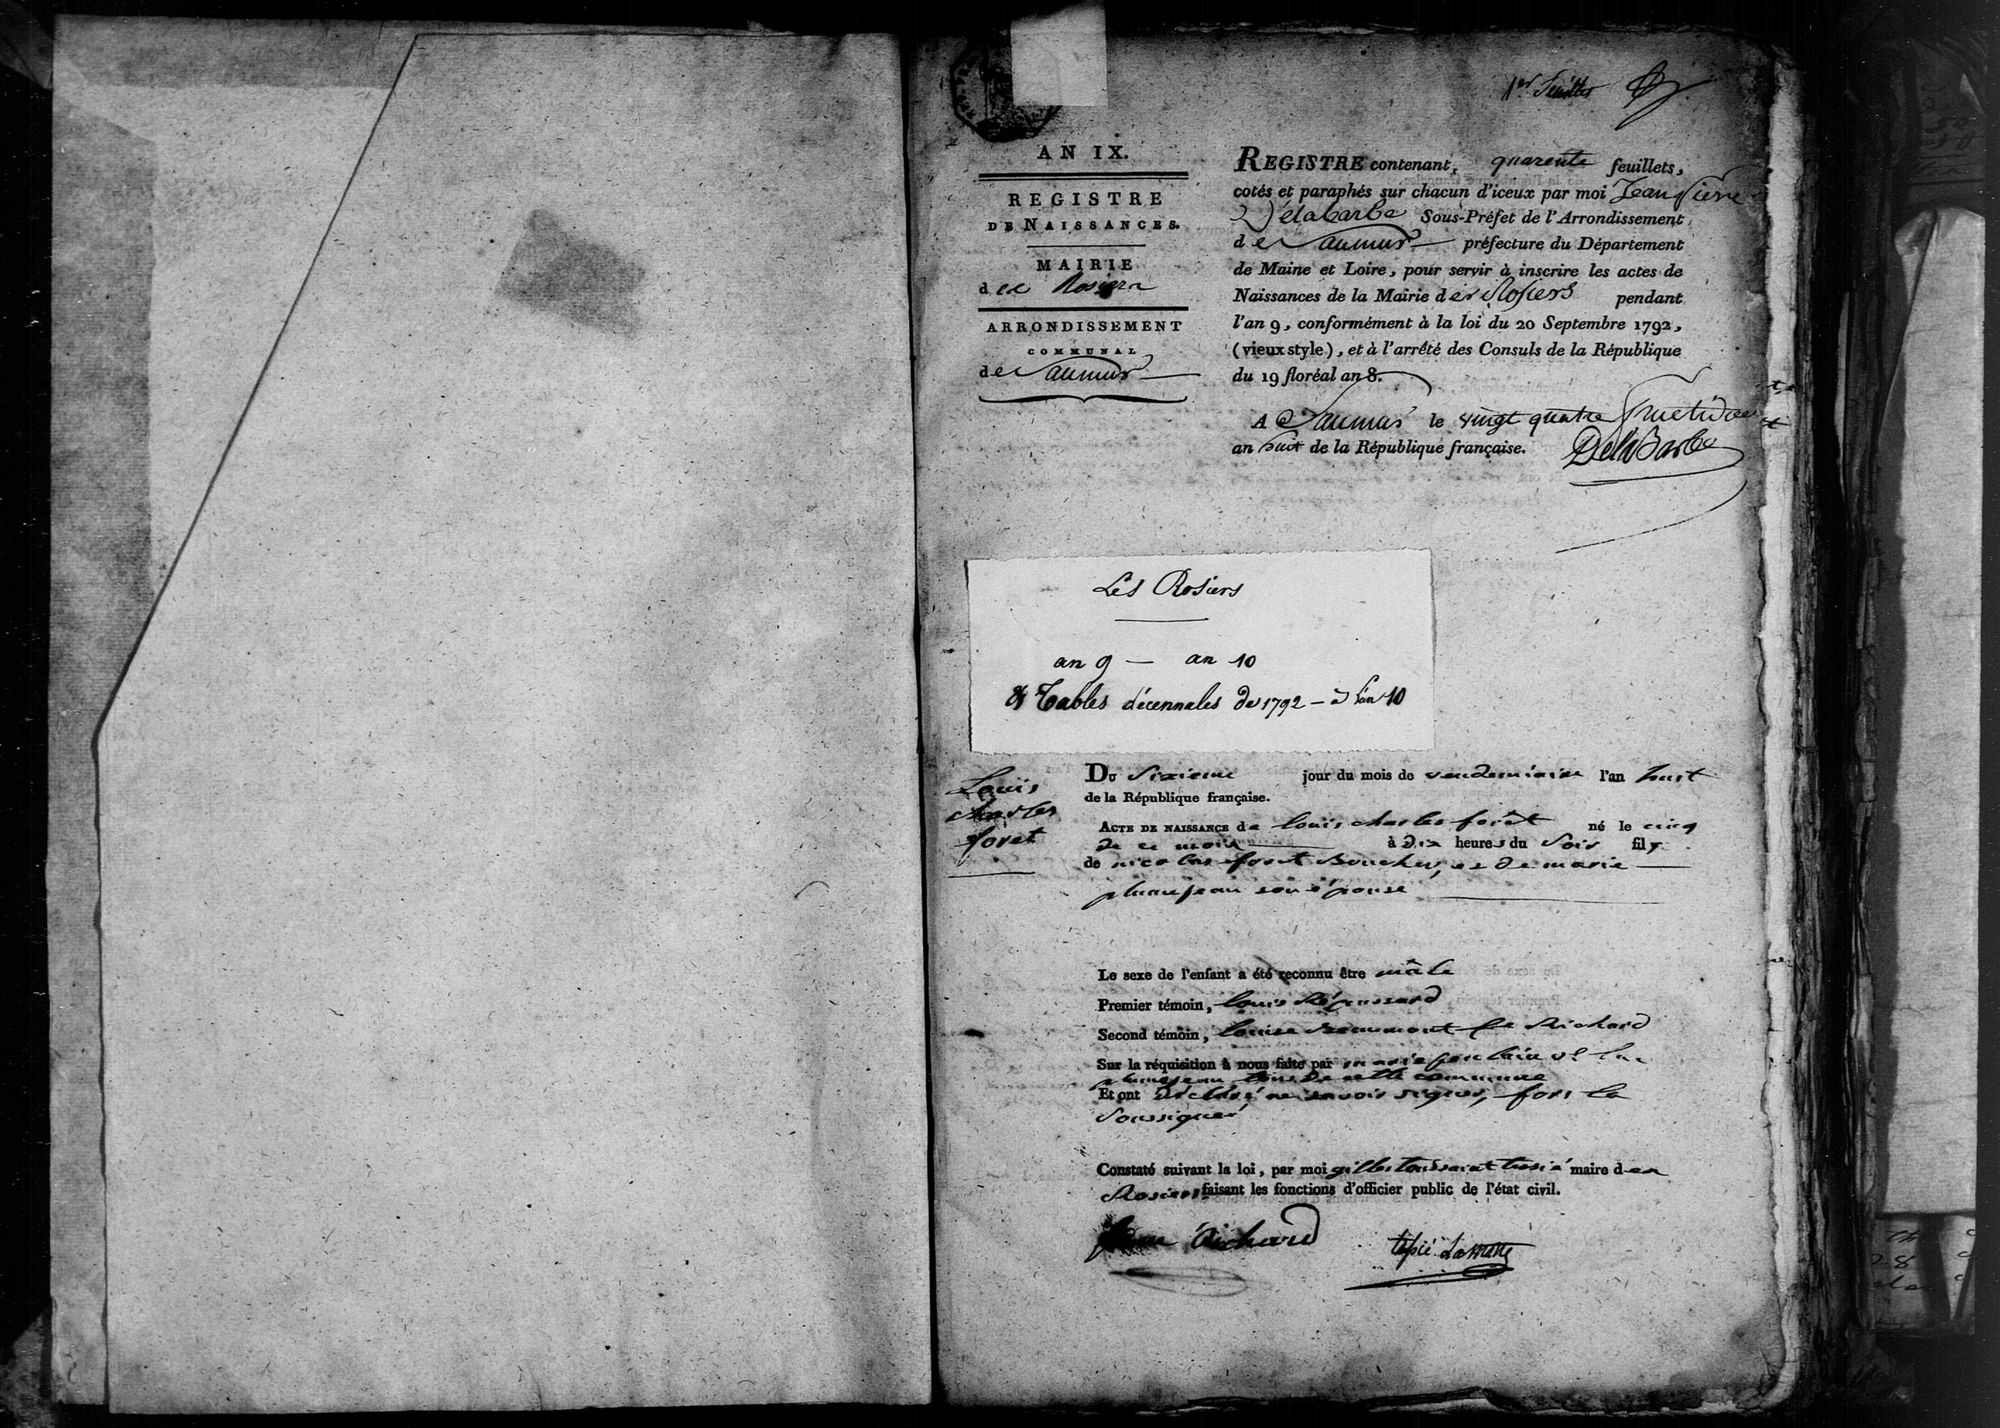 1er feuillet
AN IX.
REGISTRE
DE NAISSANCES.
MAIRIE
des Rosiers
ARRONDISSEMENT
COMMUNAL
de Saumur
REGISTRE contenant, quarente feuillets,
cotés et paraphés sur chacun d'iceux par moi Jean Pierre
Delabarbe Sous-Préfet de l'Arrondissement
de Saumur préfecture du Département
de Maine et Loire, pour servir à inscrire les actes de
Naissances de la Mairie des Rosiers pendant
l'an 9, conformément à la loi du 20 Septembre 1792,
(vieux style), et à l'arrêté des Consuls de la République
du 19 floréal an 8.
A Saumur le vingt quatre fructidor
an huit de la République française. DelaBarbe
Les Rosiers
an 9 — an 10
& Tables décennales de 1792 — à l'an 10
Louis
charles
foret
Du sixieme jour du mois de vendemiaire l'an huit
de la République française.
ACTE DE NAISSANCE de louis charles forêt né le cinq
de ce mois à dix heures du soir fils
de nicolas foret Boucher, et de marie
plumejeau son épouse
Le sexe de l'enfant a été reconnu être mâle
Premier témoin, louis Répussard
Second témoin, louise Beaumont fe Richard
Sur la réquisition à nous faite par marie
plumejeau tous de cette commune
Et ont déclaré ne savoir signer, fors la
Soussignée
Constaté suivant la loi, par moi gilles toussaint maire des
Rosiers faisant les fonctions d'officier public de l'état civil.
Richard